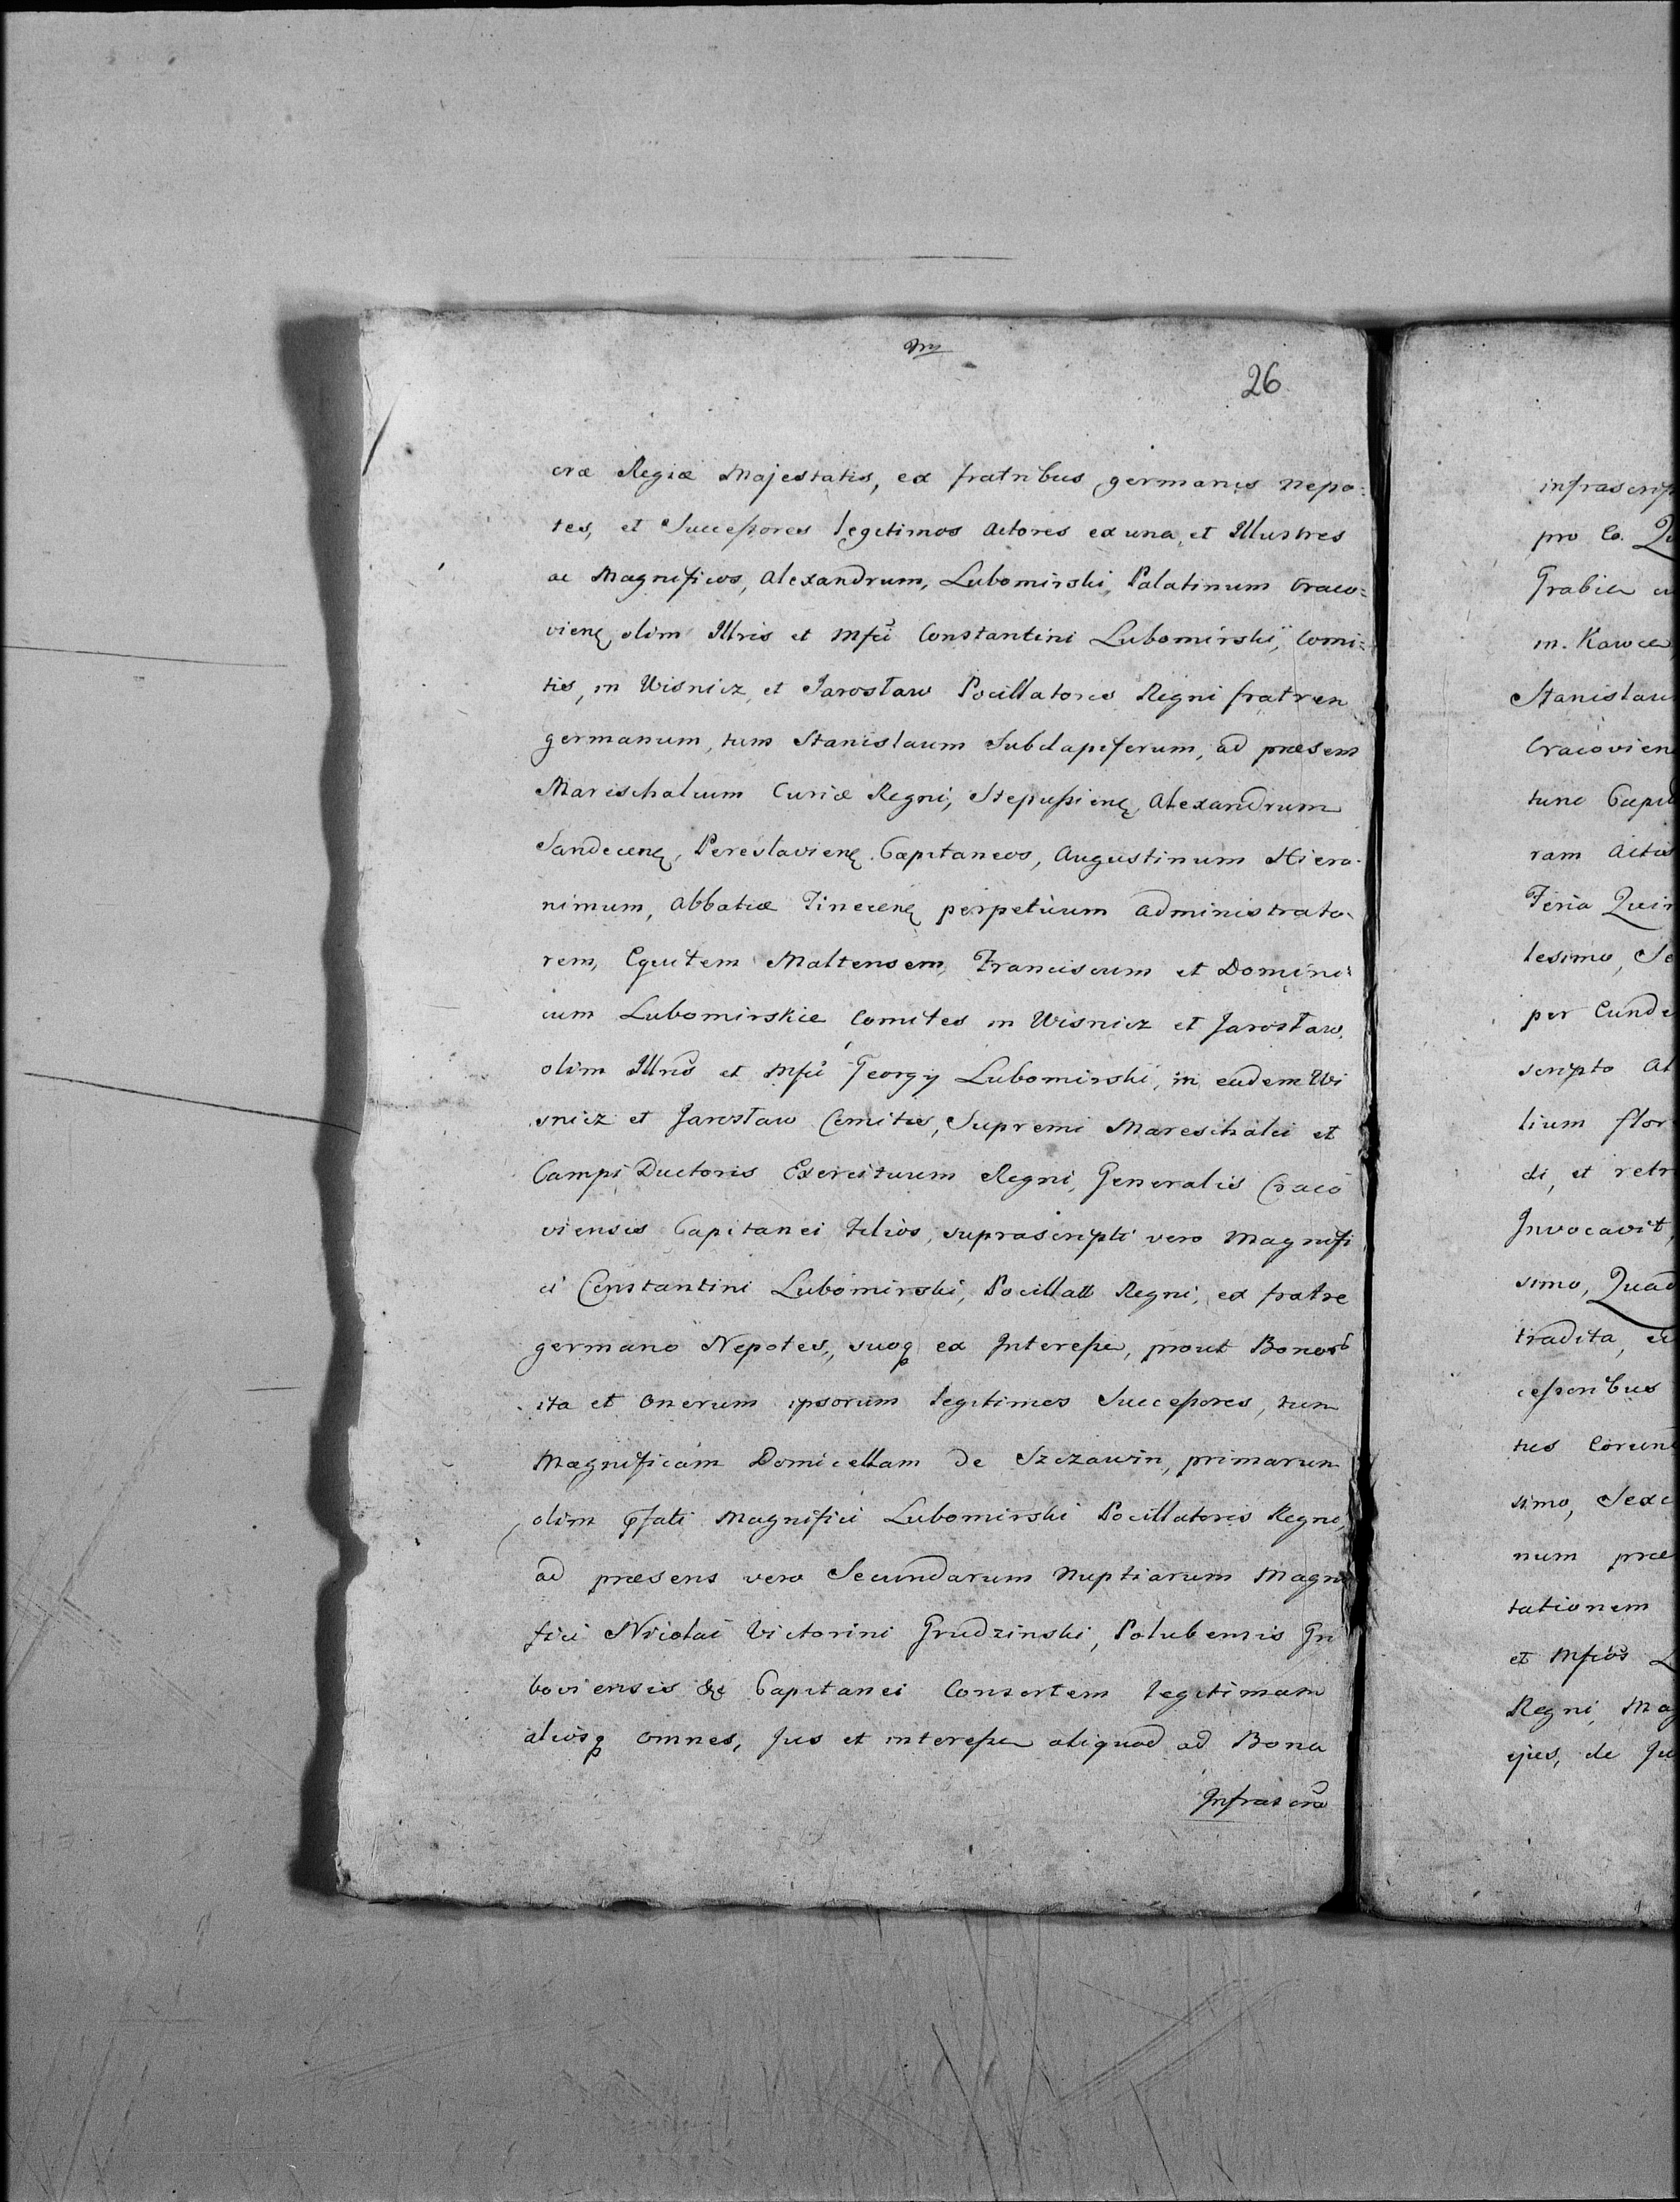 26
cræ Regiæ Majestatis, ex fratribus germanis nepo:
tes, et Successores legitimos Actores ex una, et Illustres
ac Magnificos, Alexandrum, Lubomirski, Palatinum Craco:
vienę olim Illris et Mfci Constantini Lubomirski, Comi:
tis, in Wisnicz et Jarosław Pocillatoris Regni fratrem
germanum, tum Stanislaum Subdapiferum, ad præsens
Marischalcum Curiæ Regni, Alexandrum
Sandecenę, Pereslavienę Capitaneos, Augustinum Hiero-
nimum, Abbatiæ Tinecenę perpetuum administrato-
rem, Equitem Maltensem, Franciscum et Domini:
cum Lubomirskie Comites in Wisnicz et Jarosław,
olim Illris et Mfci Georgy Lubomirski, in eadem Wi
snicz et Jarosław Comitis, Supremi Mareschalci et
Campi Ductoris Exercituum Regni, Generalis Craco
viensis Capitanei Filios, suprascripti vero Magnifi
ci Constantini Lubomirski, Pocillatt Regni, ex fratre
germano Nepotes, suoq ex Interesse, prout Bonor
ita et onerum ipsorum legitimos Successores, tum
Magnificam Domicellam de Szczawin, primarum
olim pfati Magnifici Lubomirski Pocillatoris Regni,
ad præsens vero Secundarum Nuptiarum Magni
fici Nicolai Victorini Grudzinski, Golubensis Gri
boviensis &c Capitanei Consortem legitimam
aliosq omnes, Jus et interesse aliquod ad Bona
Infrascra
infrascrip
pro
Grabie
m. Kawce
Stanislau
Cracovien
tunc Capit
ram Actis
Feria Quin
lesimo, Se
per Cunde
scripto Al
lium flor
di, et retr
Invocavit,
simo, Quad
tradita, et
cessoribus
tus Corun
simo, Sexc
num præ
tationem
et Mfcos L
Regni, Mag
ejus, de Ju